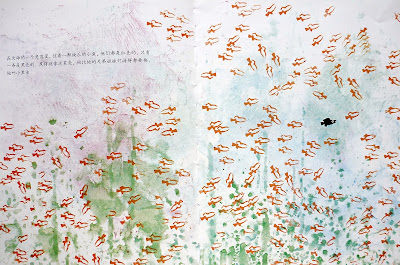 在大海的一个角落里，住着一群快乐的小鱼。他们都是红色的，只有
一条是黑色的，黑得就像淡菜壳。他比他的兄弟姐妹们游得都要快，
他叫小黑鱼